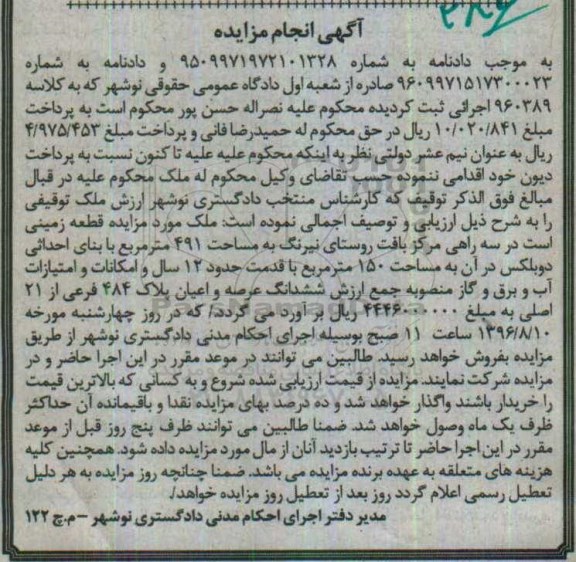 آگهی انجام مزایده
به موجب دادنامه به شماره ۹۵۰۹۹۷۱۹۷۲۱۰۱۳۲۸ و دادنامه به شماره
۹۶۰۹۹۷۱۵۱۷۳۰۰۰۲۳ صادره از شعبه اول دادگاه عمومی حقوقی نوشهر که به کلاسه
۹۶۰۳۸۹ اجرائی ثبت گردیده محکوم علیه نصراله حسن پور محکوم است به پرداخت
مبلغ ۱۰/۰۲۰/۸۴۱ ریال در حق محکوم له حمیدرضا فانی و پرداخت مبلغ ۴/۹۷۵/۴۵۳
ریال به عنوان نیم عشر دولتی نظر به اینکه محکوم علیه علیه تا کنون نسبت به پرداخت
دیون خود اقدامی ننموده حسب تقاضای وکیل محکوم له ملک محکوم علیه در قبال
مبالغ فوق الذکر توقیف که کارشناس منتخب دادگستری نوشهر ارزش ملک توقیفی
را به شرح ذیل ارزیابی و توصیف اجمالی نموده است: ملک مورد مزایده قطعه زمینی
است در سه راهی مرکز بافت روستای نیرنگ به مساحت ۴۹۱ مترمربع با بنای احداثی
دوبلکس در آن به مساحت ۱۵۰ مترمربع با قدمت حدود ۱۲ سال و امکانات و امتیازات
آب و برق و گاز منصوبه جمع ارزش ششدانگ عرصه و اعیان پلاک ۴۸۴ فرعی از ۲۱
اصلی به مبلغ ریال بر آورد می گردد/ که در روز چهارشنبه مورخه
۱۳۹۶/۸/۱۰ ساعت ۱۱ صبح بوسیله اجرای احکام مدنی دادگستری نوشهر از طریق
مزایده بفروش خواهد رسید. طالبین می توانند در موعد مقرر در این اجرا حاضر و در
مزایده شرکت نمایند. مزایده از قیمت ارزیابی شده شروع و به کسانی که بالاترین قیمت
را خریدار باشند واگذار خواهد شد و ده درصد بهای مزایده نقدا و باقیمانده آن حداکثر
ظرف یک ماه وصول خواهد شد. ضمنا طالبین می توانند ظرف پنج روز قبل از موعد
مقرر در این اجرا حاضر تا ترتیب بازدید آنان از مال مورد مزایده داده شود. همچنین کلیه
هزینه های متعلقه به عهده برنده مزایده می باشد. ضمنا چنانچه روز مزایده به هر دلیل
تعطیل رسمی اعلام گردد روز بعد از تعطیل روز مزایده خواهد/.
مدیر دفتر اجرای احکام مدنی دادگستری نوشهر – م.چ ۱۲۲